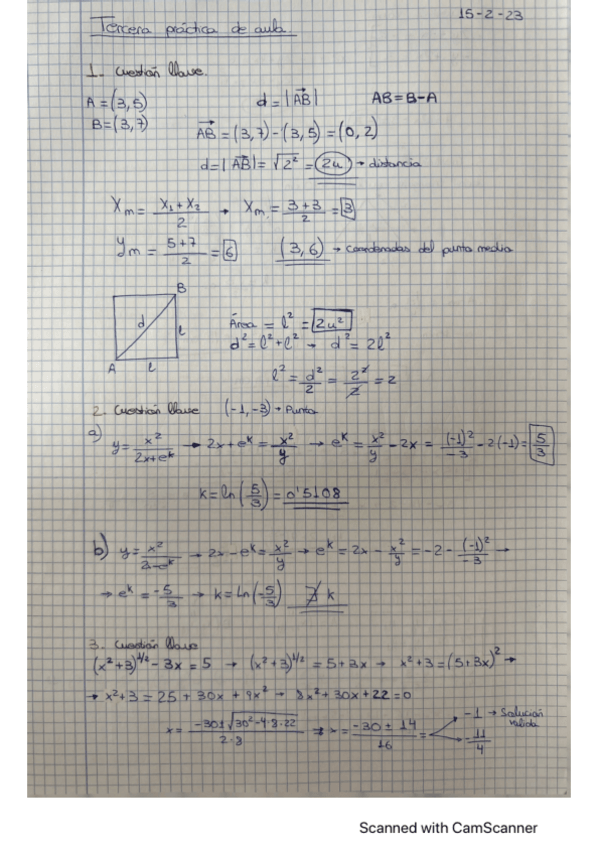 Tercera práctica de aula.
15-2-23
1. Cuestión llave.
A = (3,5)
d = |AB|
AB = B-A
B = (3,7)
AB = (3,7) - (3,5) = (0,2)
d = |AB| = √2² = 2u → distancia
Xm = (x₁ + x₂)/2 → Xm = (3+3)/2 = 3
Ym = (5+7)/2 = 6
(3,6) → coordenadas del punto medio
B
d
l
A
l
Área = l² = 2u²
d² = l² + l² → d² = 2l²
l² = d²/2 = 2²/2 = 2
2. Cuestión llave (-1,-3) → Punto
a) y = x²/(2x+eᵏ) → 2x+eᵏ = x²/y → eᵏ = x²/y - 2x = (-1)²/-3 - 2(-1) = 5/3
k = ln(5/3) = 0'5108
b) y = x²/(2x-eᵏ) → 2x-eᵏ = x²/y → eᵏ = 2x - x²/y = -2 - (-1)²/-3 →
→ eᵏ = -5/3 → k = Ln(-5/3) ∄ k
3. Cuestión llave
(x²+3)^1/2 - 3x = 5 → (x²+3)^1/2 = 5+3x → x²+3 = (5+3x)² →
→ x²+3 = 25 + 30x + 9x² → 8x² + 30x + 22 = 0
x = (-30±√30²-4·8·22)/(2·8) → x = (-30 ± 14)/16 = -1 → Solución válida
-11/4
Scanned with CamScanner